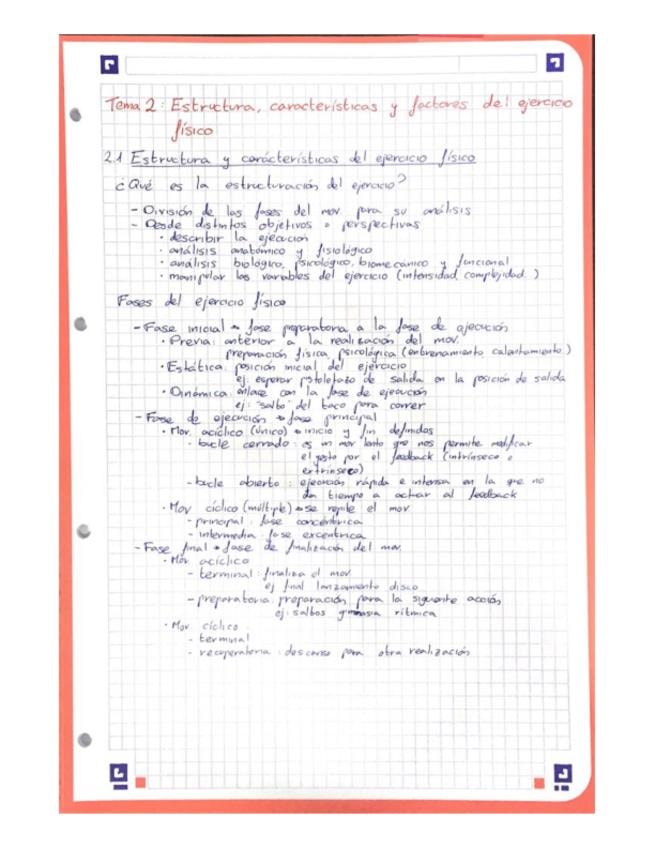 Tema 2: Estructura, características y factores del ejercicio
físico
2.1 Estructura y carácterísticas del ejercicio físico
¿Qué es la estructuración del ejercicio?
- División de las fases del mov. para su análisis
- Desde distintos objetivos o perspectivas
· describir la ejecución
· análisis anatómico y fisiológico
· análisis biológico, psicológico, biomecánico y funcional
· manipular las variables del ejercicio (intensidad, complejidad..)
Fases del ejercicio físico
- Fase inicial → fase preparatoria a la fase de ejecución
· Previa: anterior a la realización del mov.
preparación física, psicológica (entrenamiento, calentamiento)
· Estática: posición inicial del ejercicio
ej: esperar pistoletazo de salida en la posición de salida
· Dinámica: enlace con la fase de ejecución
ej: "salto" del taco para correr
- Fase de ejecución → fase principal
· Mov. acíclico (único) → inicio y fin definidos
- bucle cerrado: es un mov lento que nos permite modificar
el gesto por el feedback (intrínseco o
extrínseco)
- bucle abierto: ejecución rápida e intensa en la que no
da tiempo a actuar al feedback
· Mov cíclico (múltiple) → se repite el mov
- principal: fase concéntrica
- intermedia: fase excéntrica
- Fase final → fase de finalización del mov.
· Mov. acíclico
- terminal: finaliza el mov.
ej final lanzamiento disco
- preparatoria: preparación para la siguiente acción
ej: saltos gimnasia rítmica
· Mov. cíclico
- terminal
- recuperatoria: descanso para otra realización